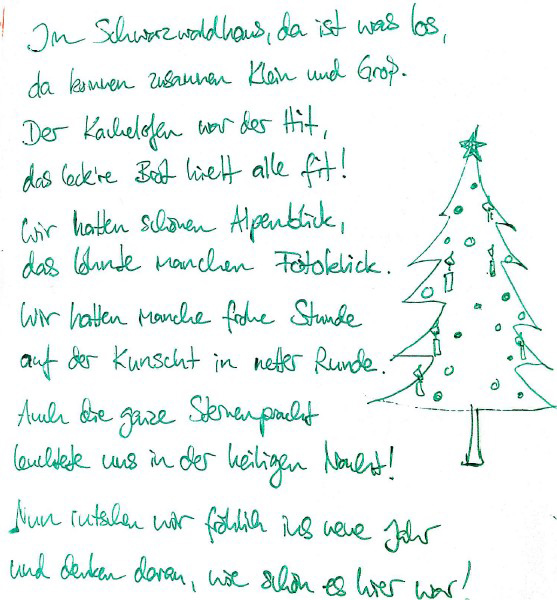 Im Schwarzwaldhaus, da ist was los,
da kommen zusammen Klein und Groß.
Der Kachelofen war der Hit,
das leck're Brot hielt alle fit!
Wir hatten schönen Alpenblick,
das lohnte manchen Fotoklick.
Wir hatten manche frohe Stunde
auf der Kunscht in netter Runde.
Auch die ganze Sternenpracht
leuchtete uns in der heiligen Nacht!
Nun rutschen wir fröhlich ins neue Jahr
und denken daran, wie schön es hier war!